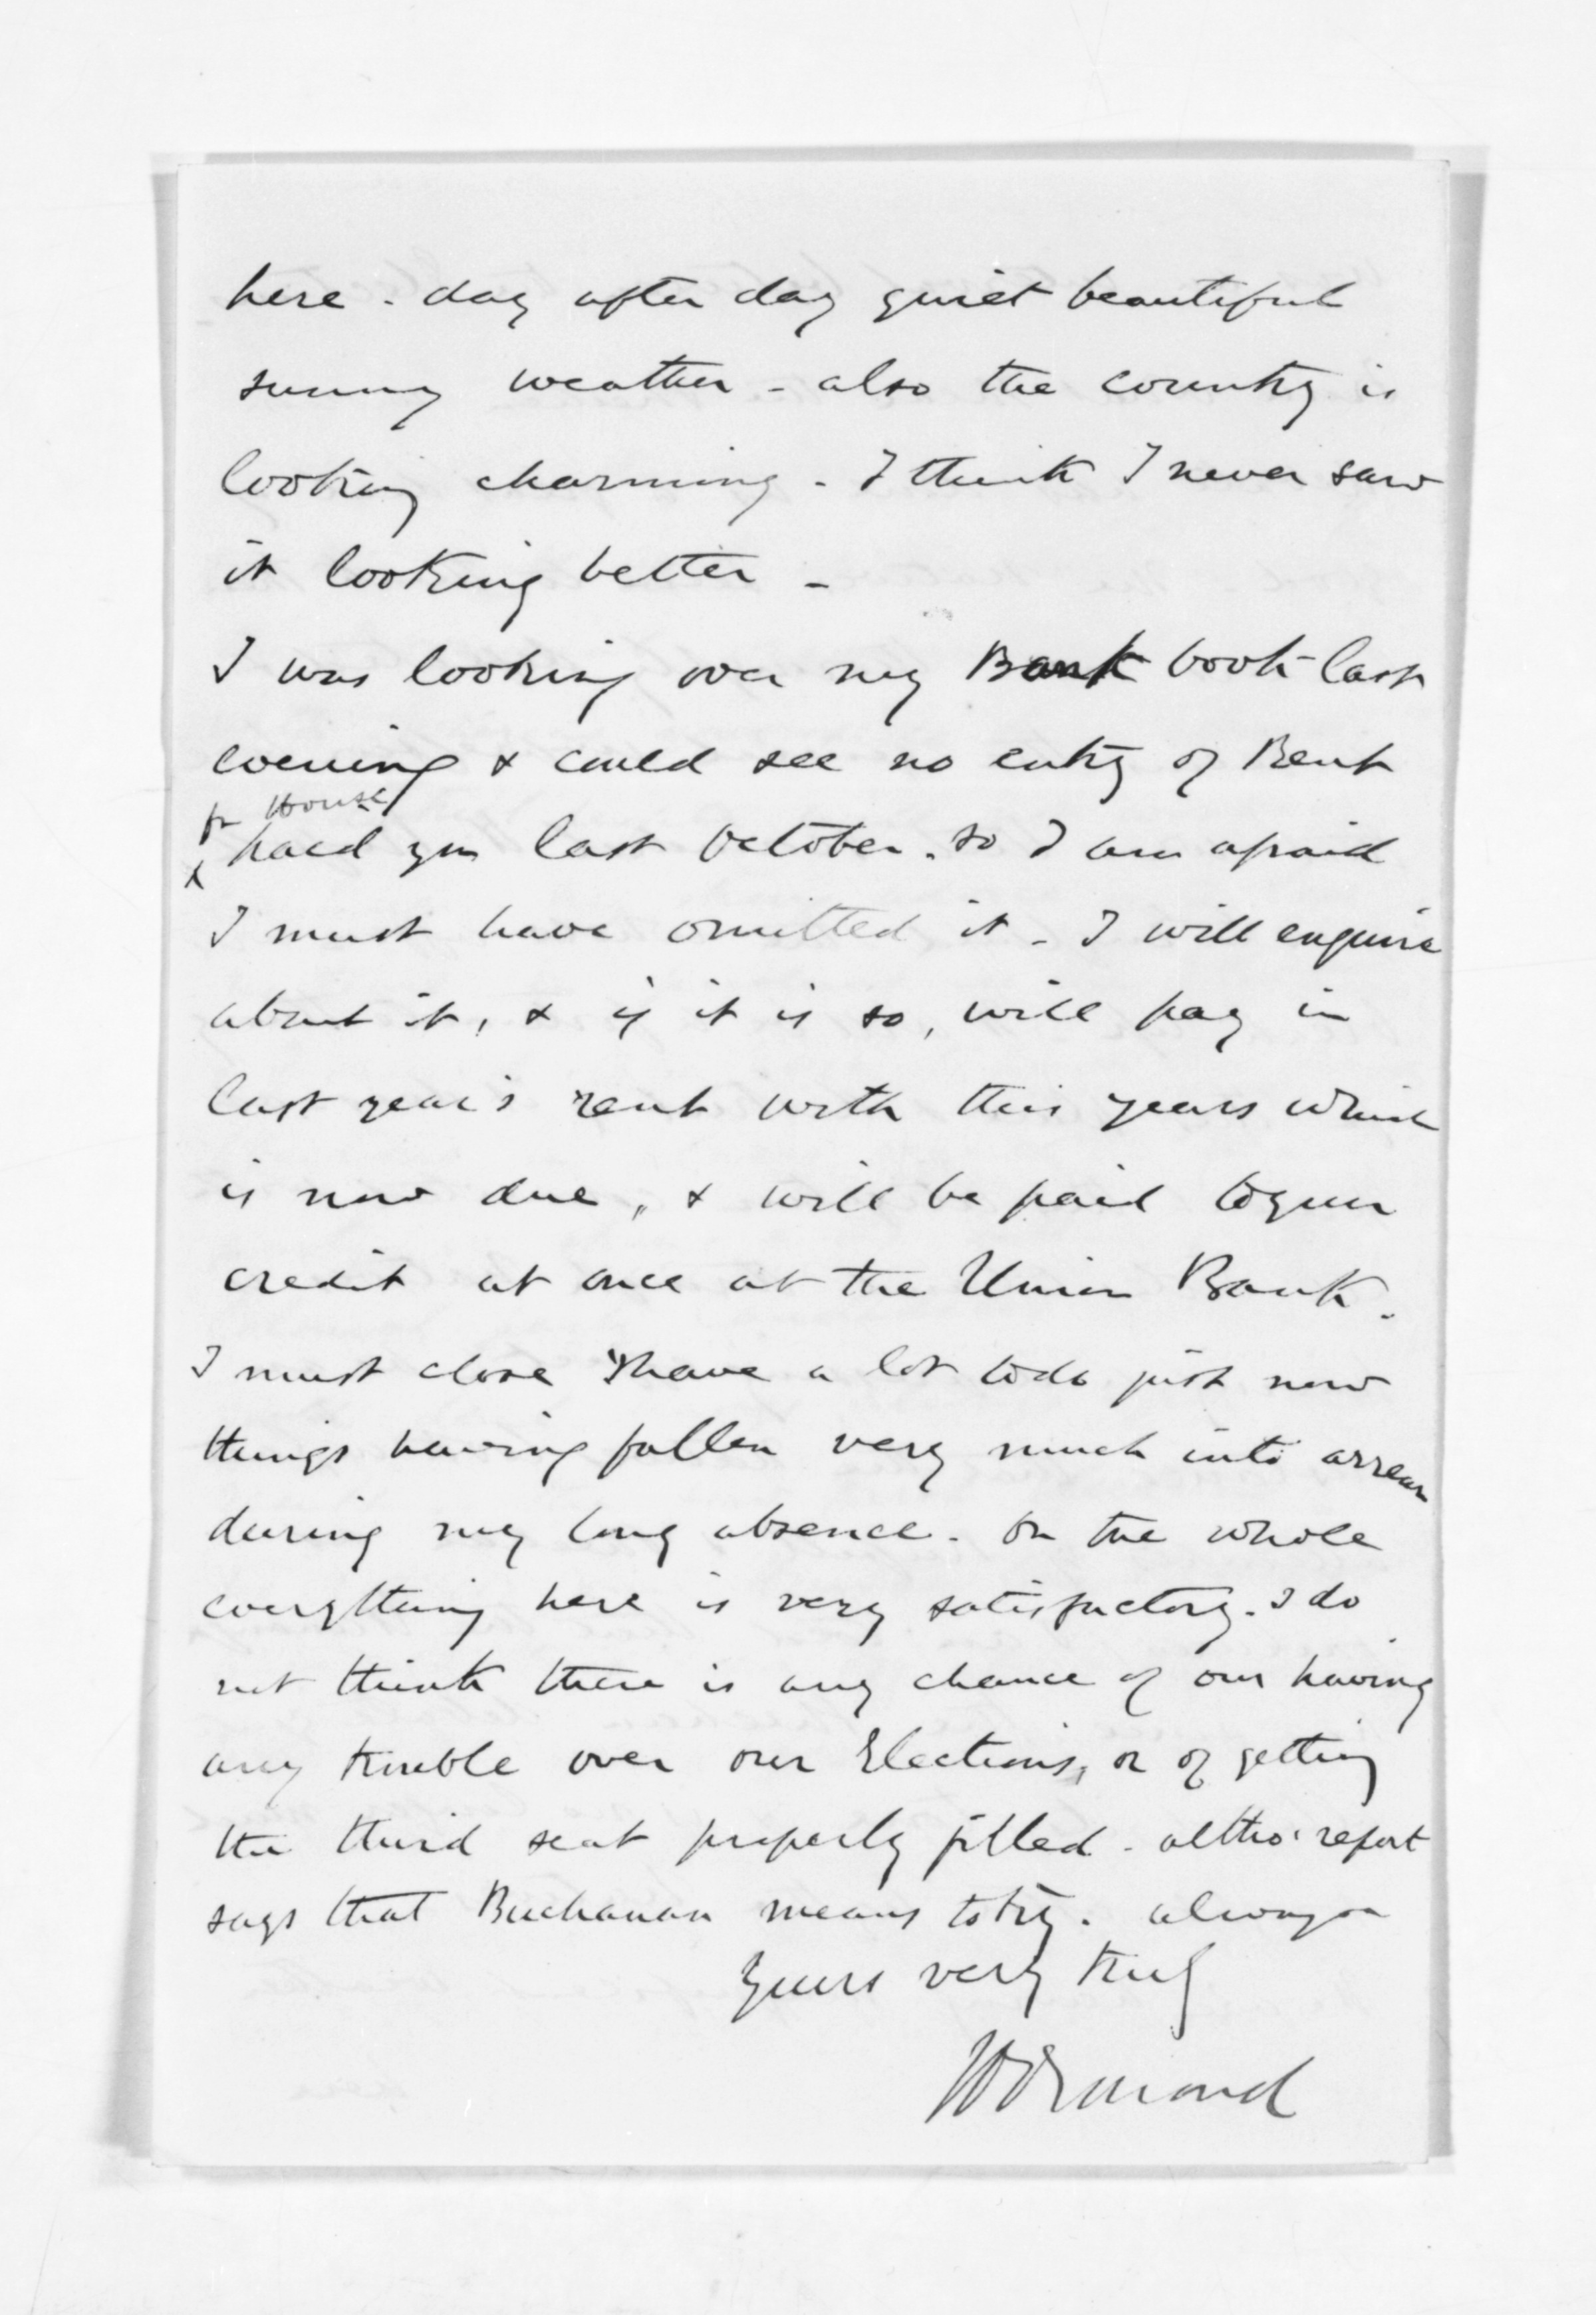 here - day after day quiet beautiful
sunny weather - also the country is
looking charming - I think I never saw
it looking better -
I was looking over my Bank book last
evening & could see no entry of Rent
for House
paid you last October. so I am afraid
I must have omitted it - I will enquire
about it, & if it is so, will pay in
last year's rent with this years which
is now due, & will be paid to your
credit at once at the Union Bank.
I must close I have a lot to do just now
things having fallen very much into arrear
during my long absence. On the whole
everything here is very satisfactory. I do
not think there is any chance of our having
any trouble over our Elections, or of getting
the third seat properly filled - altho' report
says that Buchanan means to try. always
Yours very truly
JD Ormond